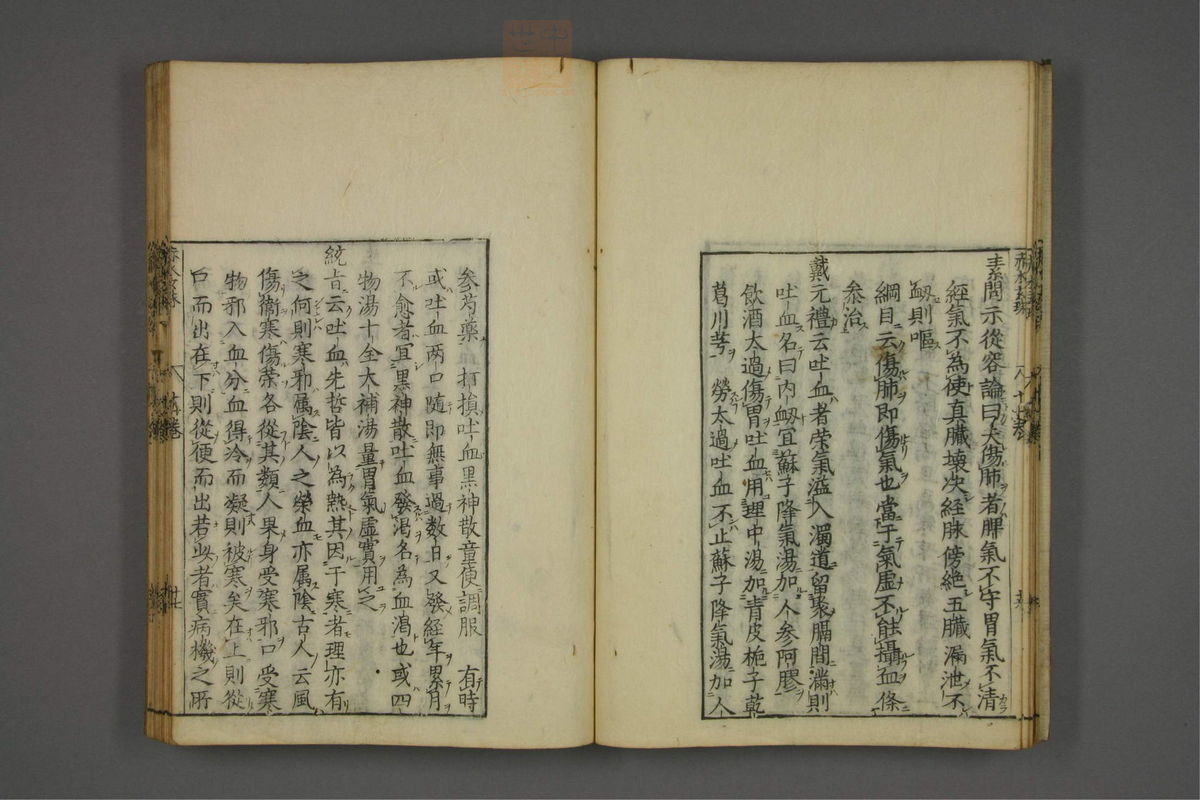 素問示從容論曰夫傷肺者脾氣不守胃氣不清
經氣不為使真臓壊决経脉傍絶五臓漏泄不
衂則嘔
綱目云傷肺即傷氣也當于氣虚不能攝血條
参治
戴元禮云吐血者荣氣溢入濁道留聚膈間滿則
吐血名曰内衂宜蘇子降氣湯加人参阿膠
飲酒太過傷胃吐血用理中湯加青皮梔子乾
葛川芎　勞太過吐血不止蘇子降氣湯加人
参芍藥　打損吐血黒神散童便調服　有時
或吐血两口随即無事過数日又發経年累月
不愈者宜黒神散吐血發渇名為血渇也或四
物湯十全大補湯量胃氣虚實用之
統旨云吐血先哲皆以為熱其因于寒者理亦有
之何則寒邪属陰人之榮血亦属陰古人云風
傷衛寒傷荣各從其類人果身受寒邪口受寒
物邪入血分血得冷而凝則被寒矣在上則從
口而出在下則從便而出若此者實病機之所